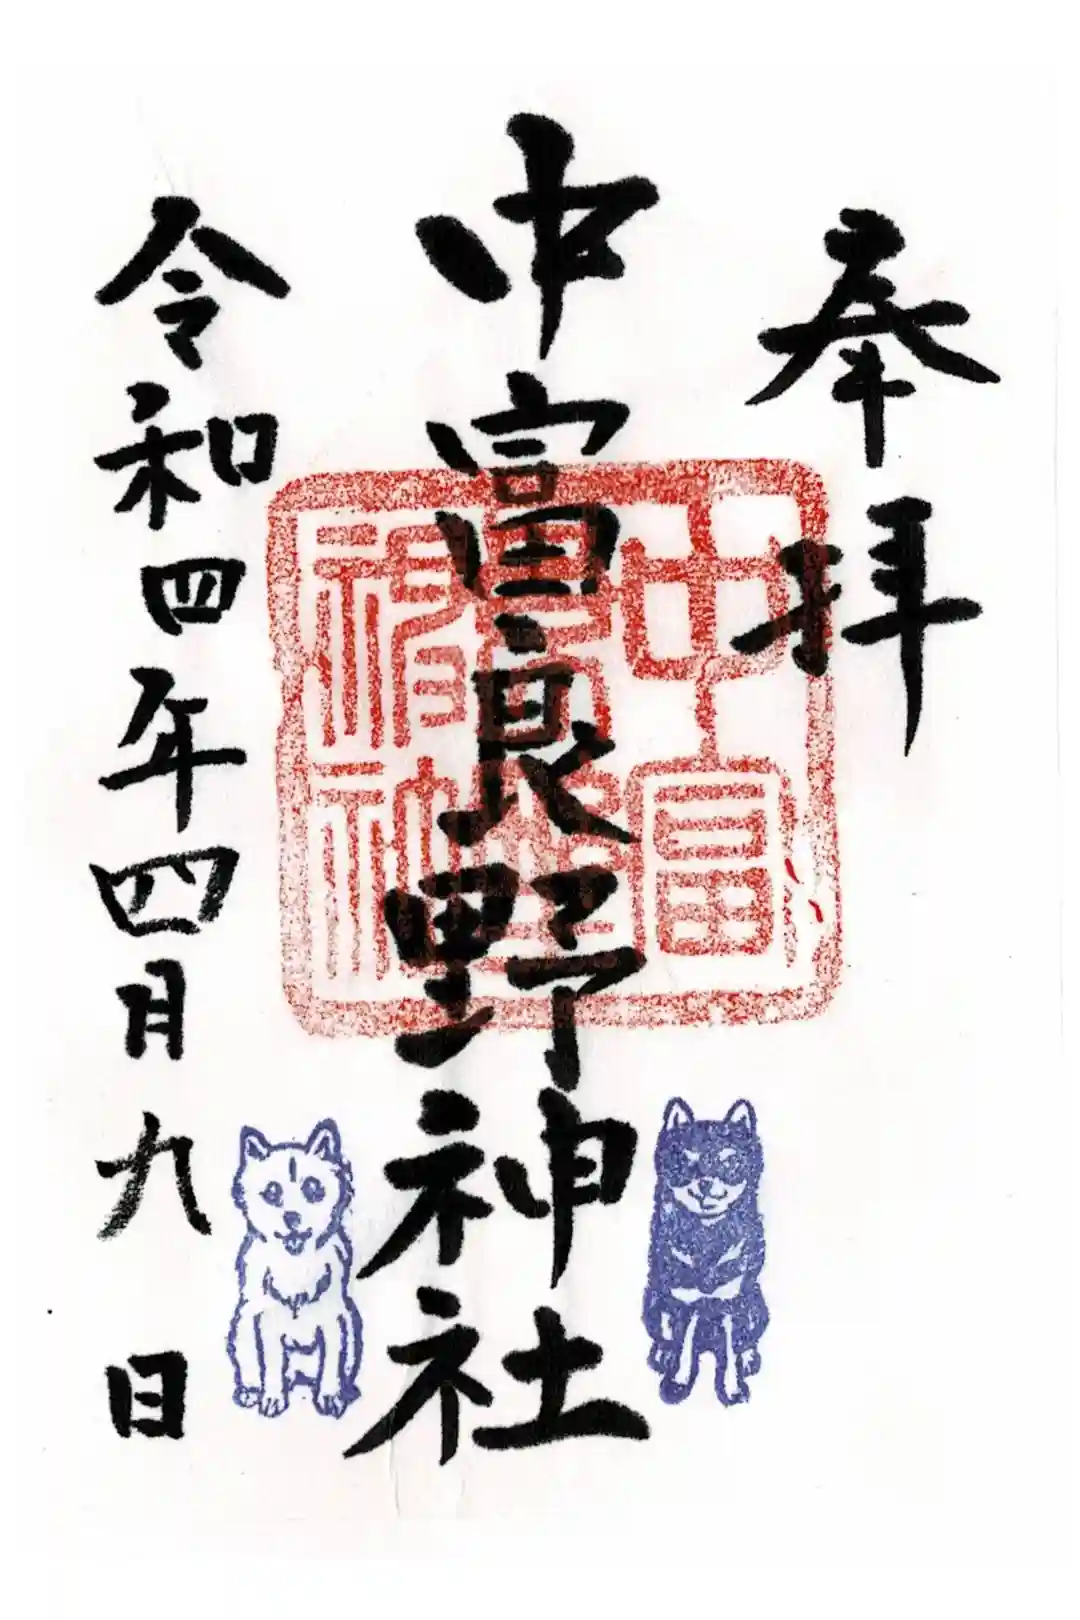 奉拝
中富良野神社
令和四年四月九日
中富